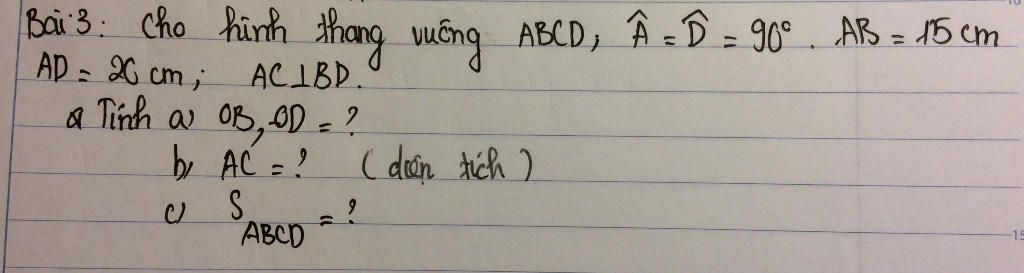 Bài 3: Cho hình thang vuông ABCD, Â = D̂ = 90°. AB = 15 cm
AD = 20 cm; AC⊥BD.
Tính a) OB, OD = ?
b) AC = ? (diện tích)
c) S ABCD = ?
15